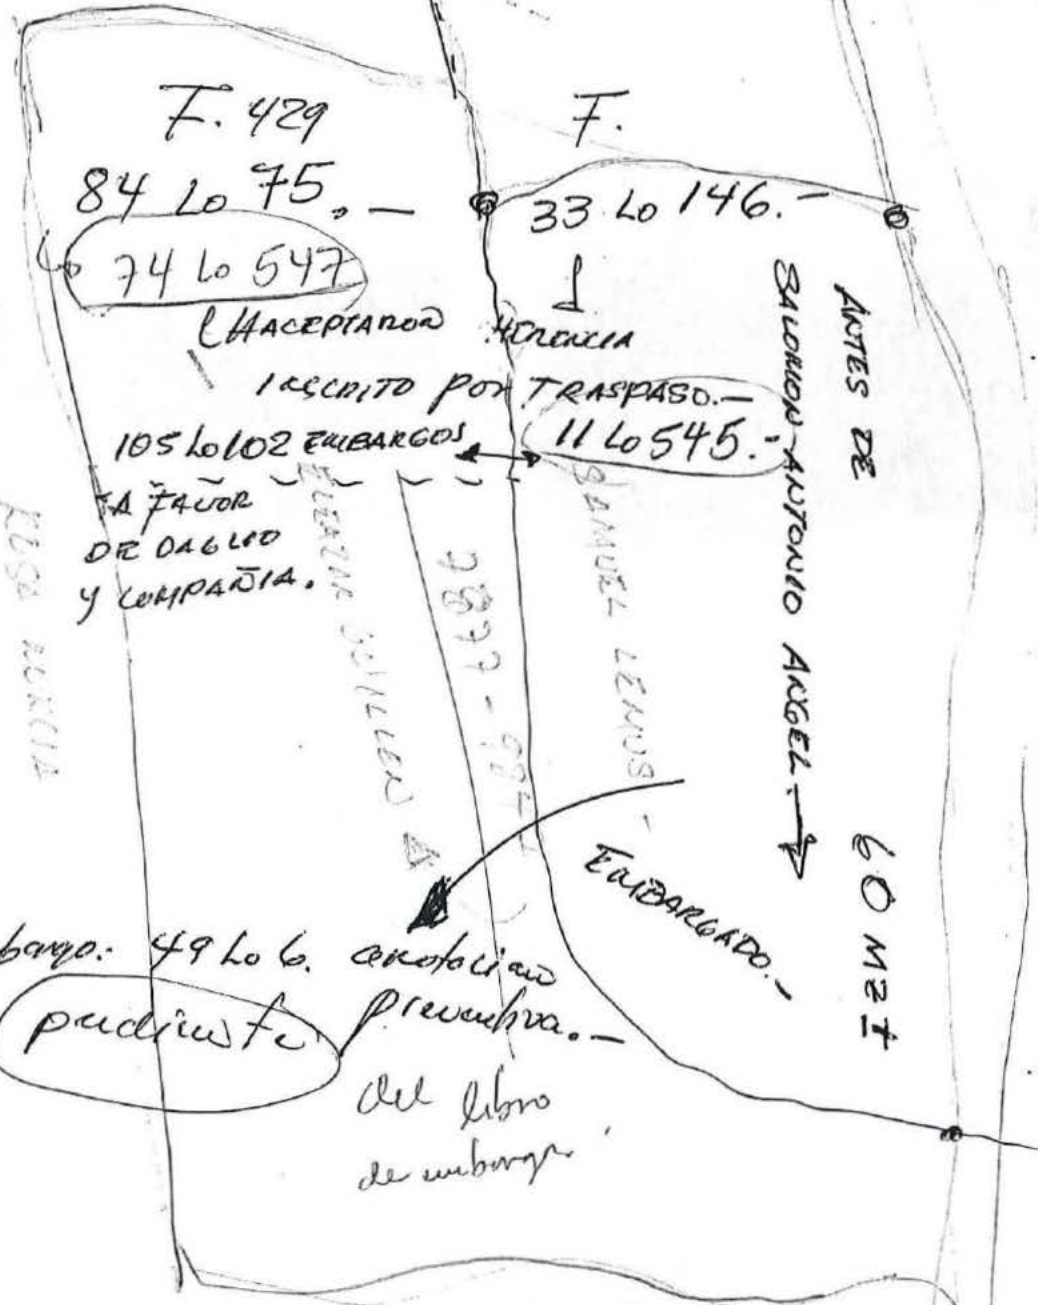 F. 429
84 Lo 75.-
Lo 74 Lo 547
F.
33 Lo 146.-
HACEPTARON HERENCIA
INSCRITO POR TRASPASO.-
11 Lo 545.-
105 Lo 102 EMBARGOS
A FAVOR
DE DAGLIO
Y COMPAÑIA.
ANTES DE
SALOMON-ANTONIO ANGEL.-
60 MZ ±
ROSA
GUILLEN
7877-
SAMUEL LEMUS-
EMBARGADO.-
bargo: 49 Lo 6. anotacion
preventiva.-
pendiente
del libro
de embargo